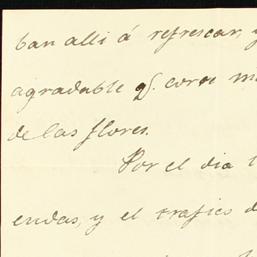 ban alli á refrescar, y
agradable q. corre
de las flores.
Por el dia
endas, y el trafico d